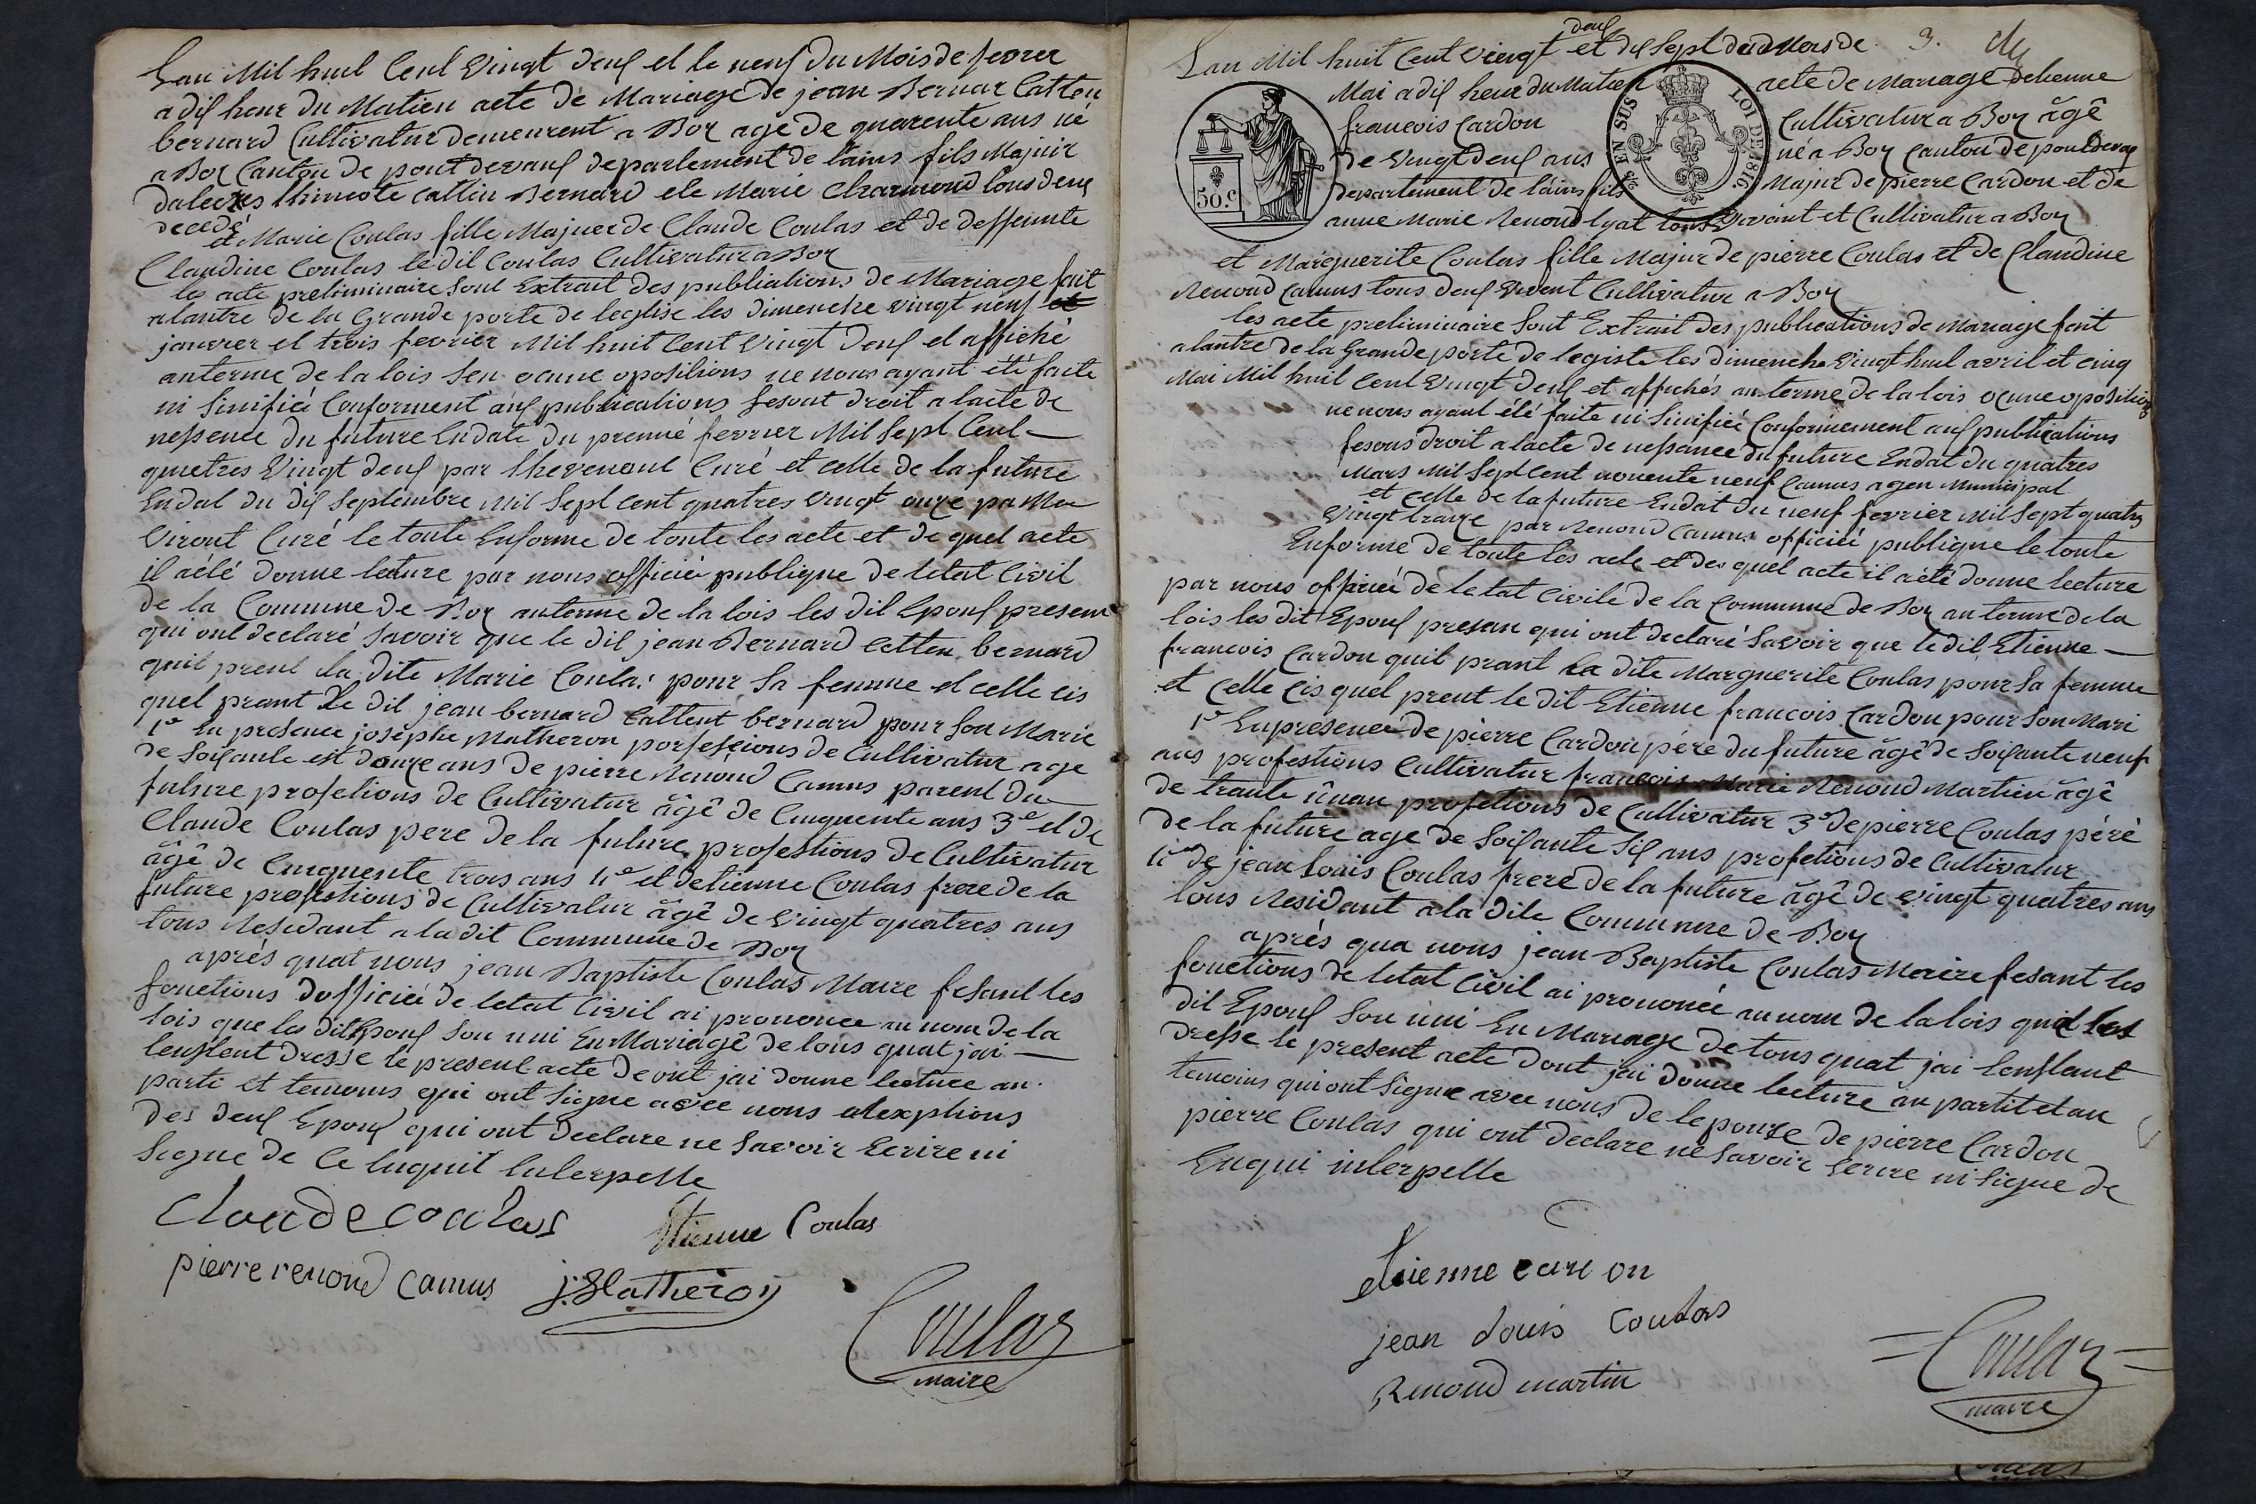 Lan Mil huit Cent vingt deux et le neuf du Mois de fevrer
a dix heur du Matien acte de Mariage de jean Bernar Catten
bernard Cultivatur demeurent a Boz age de quarente ans né
a Boz Canton de pont devaux departement de lains fils Majeur
Marie Charmond tous deux
decedé
et Marie Coulas fille Majuer de Claude Coulas et de deffeinte
Claudine Coulas le dit Coulas Cultivatur a Boz
les acte preliminaire sont Extrait des publications de Mariage fait
a lantre de la Grande porte de leglise les dimenche vingt neuf et
janvier et trois fevrier Mil huit Cent vingt deux et affiché
anterme de la lois sen ocune opositions ne nous ayant été faite
ni Sinifiéé Conforment aux publications fesont droit a lacte de
nessence du future Endate du premié fevrier Mil Sept Cent
quatres vingt deux par thevenont Curé et celle de la future
Endat du dix Septembre Mil Sept Cent quatres vingt onze pa
viront Curé le toute Enforme de toute les acte et de quel acte
il aété donne lecture par nous officiéé publique de letat Civil
de la Commune de Boz anterme de la lois les dit Epoux presenc
qui ont declaré Savoir que le dit jean Bernard Catten bernard
quil prent la dite Marie Coulas pour Sa femme et celle cis
quel prant le dit jean bernard Cattent bernard pour Son Marie
1e En presence josephe Matheron porfessions de Cultivatur age
de Soixante et douze ans de pierre Renoud Camus parent du
future professions de Cultivatur âgê de Cinquente ans 3e et de
Claude Coulas pere de la future professtions de Cultivatur
âgê de Cinquente trois ans 4e et detienne Coulas frere de la
future professtions de Cultivatur âgê de vingt quatres ans
tous Residant a la dit Commune de Boz
aprés quat nous jean Baptiste Coulas Maire fesant les
fonctions dofficiéé de letat Civil ai prononcé au nom de la
lois que les dit Epoux Son uni En Mariagê de tous quat jai
Consstent dresse le present acte de ont jai donne lecture au
parti et temoins qui ont Signe avee nous alexptions
des deux Epoux qui ont declare ne Savoir Ecrire ni
Signe de Ce luquit Enterpelle
Claude Coulas
Etienne Coulas
pierre renoud Camus
j: Matheron
Coulas
maire
3.
deux
Lan Mil huit Cent vingt et dix Sept du Mois de
Mai a dix heur du Matien acte de Mariage detienne
francois Cardon Cultivatur a Boz âgê
de vingt deux ans né a Boz Canton de pont devaux
departement de lains fils Majur de pierre Cardon et de
anne Marie Renoud lyat tous vivant et Cultivatur a Boz
50 c.
EN SUS
LOI DE 1816
et Marguerite Coulas fille Majur de pierre Coulas et de Claudine
Renoud Camus tous deux vivent Cultivatur a Boz
les acte preliminaire Sont Extrait des publications de Mariage fait
a lantre de la Grande porte de legiste les dimenche vingt huit avril et cinq
Mai Mil huit Cent vingt deux et affichés anterme de la lois ocune opositions
ne nous ayant été faite ni Sinifiéé Conformement aux publications
fesons droit a lacte de nessance du future Endat du quatres
Mars Mil Sept Cent novente neuf Camus agen Municipal
et celle de la future Endat du neuf fevrier Mil Sept quatre
vingt traize par Renoud Camus officiéé publique le toute
Enforme de toute les acte et des quel acte il aété donne lecture
par nous officiéé de letat Civile de la Commune de Boz anterme de la
lois les dit Epoux presan qui ont declaré Savoir que le dit Etienne
francois Cardon quil prant la dite Marguerite Coulas pour Sa femme
et Celle Cis quel prent le dit Etienne francois Cardon pour Son Mari
1e En presence de pierre Cardon pére du future âgê de Soixante neuf
ans professtions Cultivatur francois Marie Renoud Martien âgê
de trante un an professtions de Cultivatur 3e de pierre Coulas péré
de la future age de Soixante Six ans profetions de Cultivatur
de jean Louis Coulas frere de la future âgê de vingt quatres ans
tous Residant a la dite Commune de Boz
aprés qua nous jean Baptiste Coulas Maire fesant les
fonctions de letat Civil ai prononcéé au nom de la lois que les
dit Epoux Son uni En Mariage de tous quat jai Consstant
dresse le present acte dont jai donne lecture au partit et au
temoins qui ont Signe avec nous de lepouse de pierre Cardon
pierre Coulas qui ont declare ne Savoir Ecrire ni Signe de
Enqui interpelle
etienne cardon
jean Louis Coulas
Renoud martin
Coulas
maire